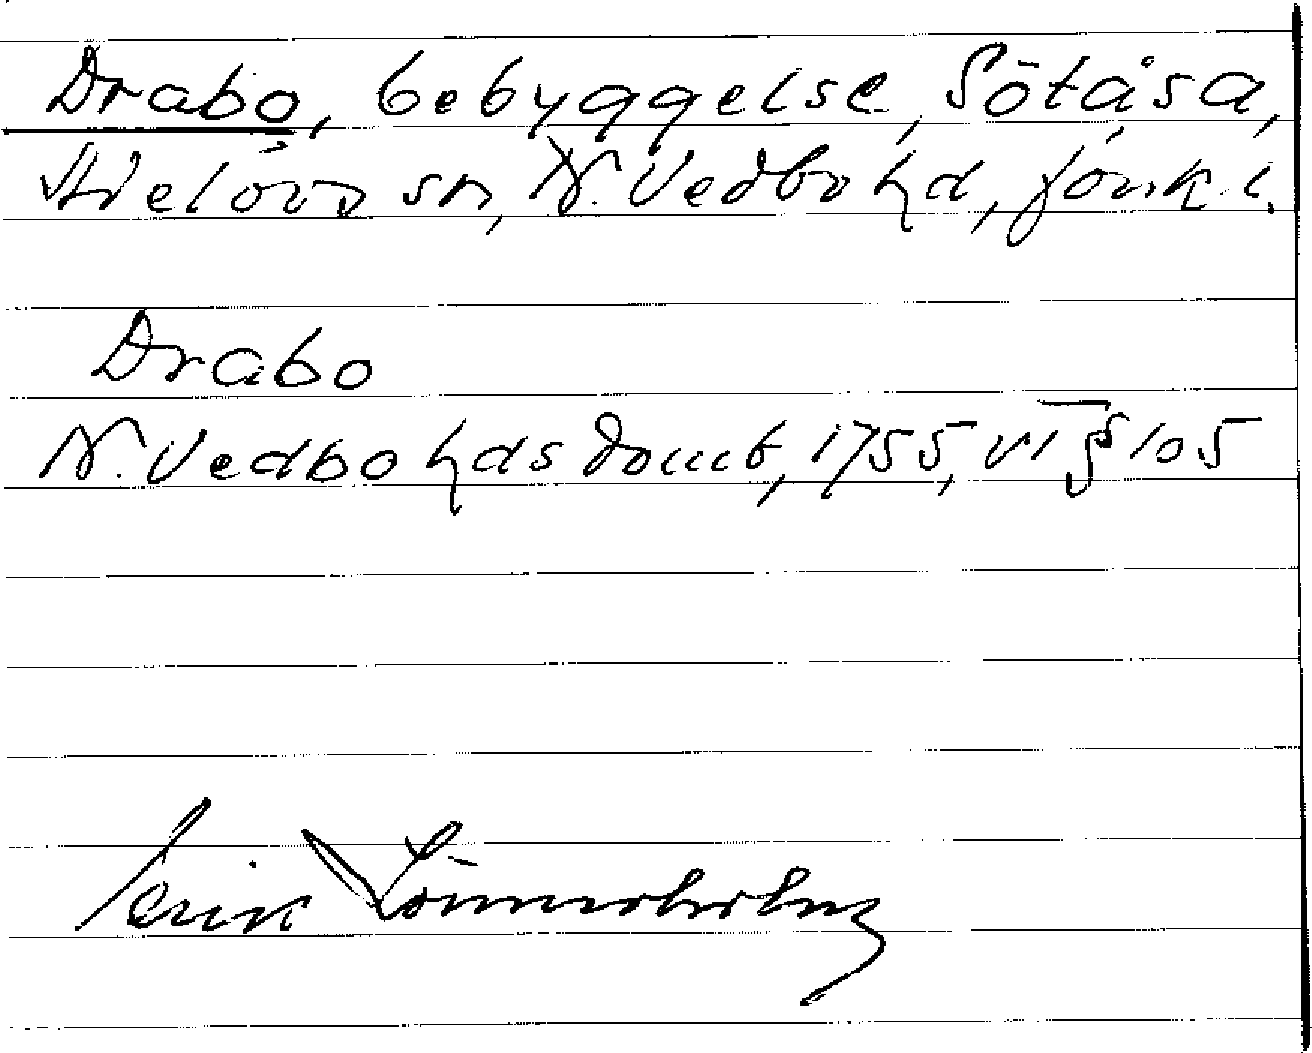 Drabo, bebyggelse, Sötåsa,
sn, N. Vedbo hd, Jönk. l.
Drabo
N. Vedbo hds domb, 1755, VI § 105
Erik Lönnerholm